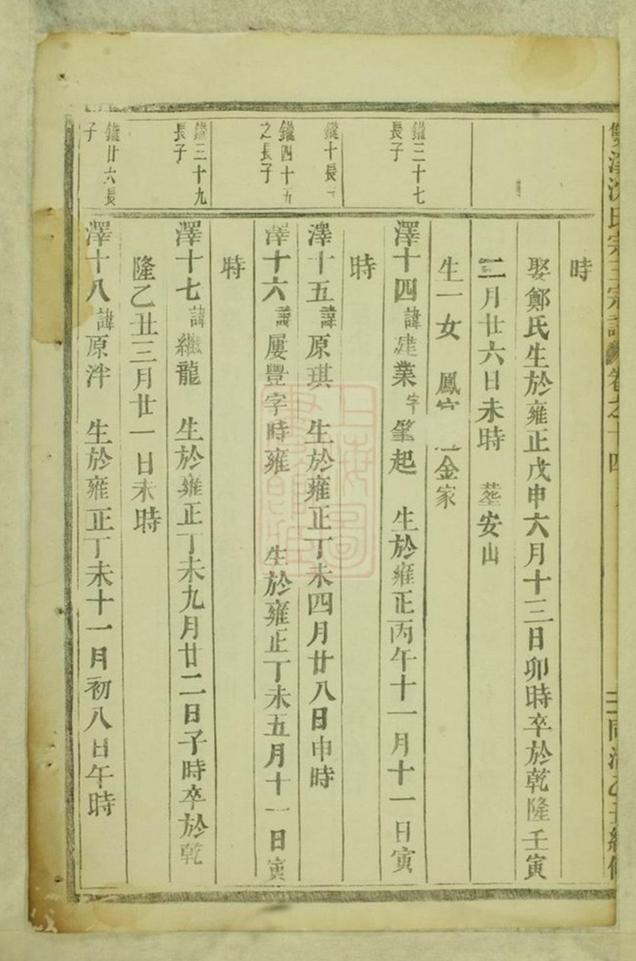 時
娶鄭氏生於雍正戊申六月十三日卯時卒於乾隆壬寅
二月廿六日未時 塟安山
生一女 鳳 金家
鐵三十七
長子
澤十四諱建業字肇起 生於雍正丙午十一月十一日寅
時
鐵十長
澤十五諱原琪 生於雍正丁未四月廿八日申時
鐵四十五
之長子
澤十六諱屢豐字時雍 生於雍正丁未五月十一日寅
時
鐵三十九
長子
澤十七諱繼龍 生於雍正丁未九月廿二日子時卒於乾
隆乙丑三月廿一日未時
鐵廿六長
子
澤十八諱原泮 生於雍正丁未十一月初八日午時